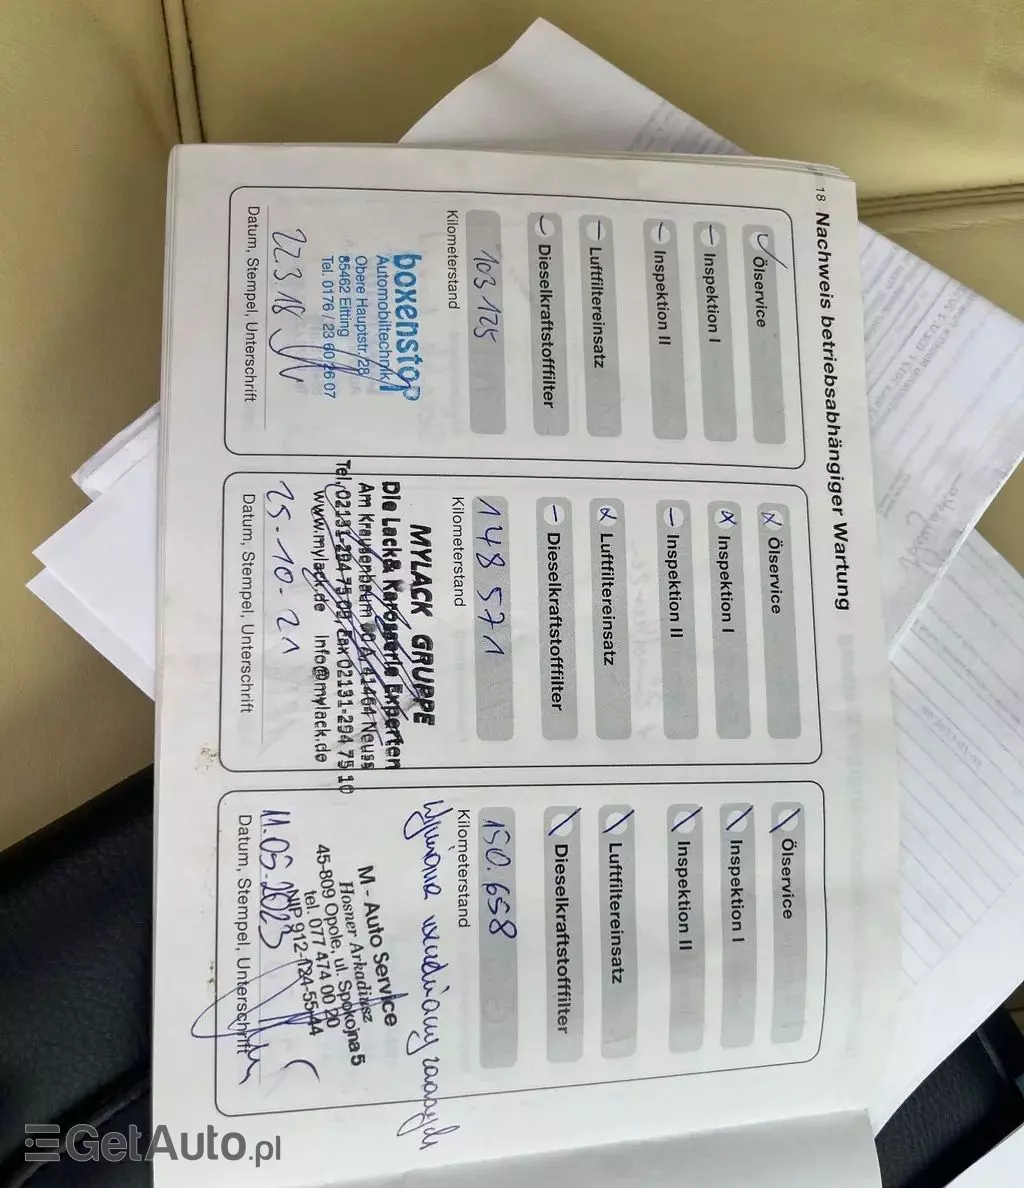 18 Nachweis betriebsabhängiger Wartung
Ölservice
Inspektion I
Inspektion II
Luftfiltereinsatz
Dieselkraftstofffilter
103125
Kilometerstand
boxenstop
Automobiltechnik
Obere Hauptstr. 28
85462 Eitting
Tel. 0176 / 23 60 26 07
22.3.18
Datum, Stempel, Unterschrift
Ölservice
Inspektion I
Inspektion II
Luftfiltereinsatz
Dieselkraftstofffilter
148 571
Kilometerstand
MYLACK GRUPPE
Die Lack& Karosserie Experten
Am Krausenbaum 60 A, 41464 Neuss
Tel. 02131-294 75 09, Fax 02131-294 75 10
www.mylack.de Info@mylack.de
25-10-21
Datum, Stempel, Unterschrift
Ölservice
Inspektion I
Inspektion II
Luftfiltereinsatz
Dieselkraftstofffilter
150.658
Kilometerstand
Wymiana
M - Auto Service
Hosner Arkadiusz
45-809 Opole, ul. Spokojna 5
tel. 077 474 00 20
NIP 912-124-55-44
11.05.2023
Datum, Stempel, Unterschrift
GetAuto.pl